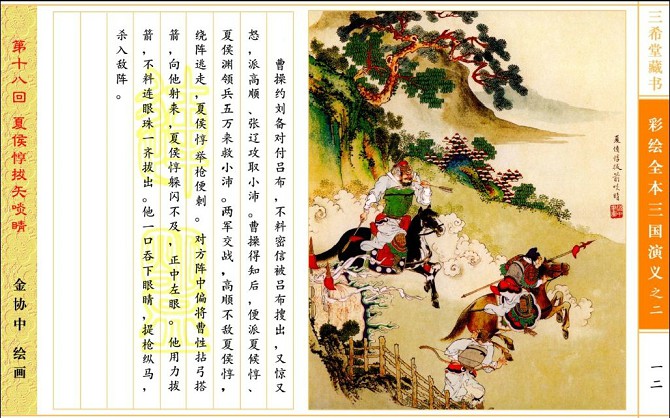 三希堂藏书
彩绘全本三国演义之二
一二
夏侯惇拔箭啖睛
曹操约刘备对付吕布，不料密信被吕布搜出，又惊又
怒，派高顺、张辽攻取小沛。曹操得知后，便派夏候惇、
夏侯渊领兵五万来救小沛。两军交战，高顺不敌夏侯惇，
绕阵逃走，夏侯惇举枪便刺。对方阵中偏将曹性拈弓搭
箭，向他射来，夏侯惇躲闪不及，正中左眼。他用力拔
箭，不料连眼珠一齐拔出。他一口吞下眼睛，提枪纵马，
杀入敌阵。
第十八回 夏侯惇拔矢啖睛
金协中 绘画